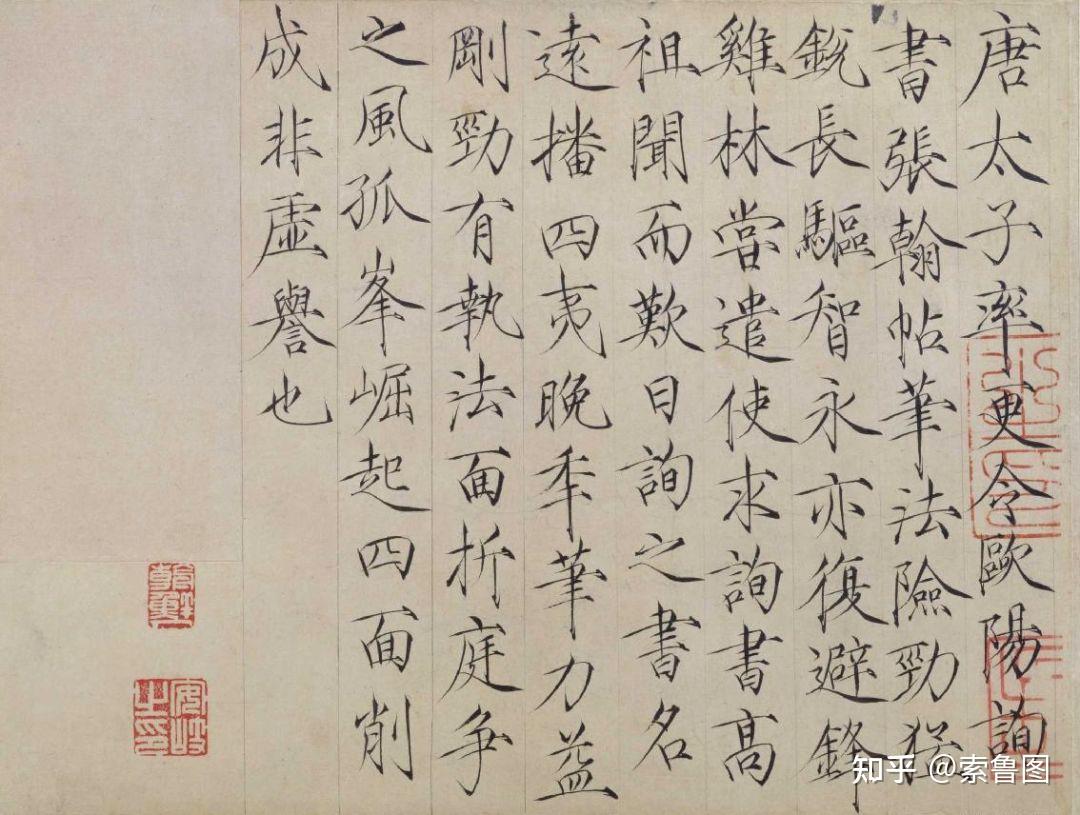 唐太子率更令歐陽詢
書張翰帖筆法險勁猛
銳長驅智永亦復避鋒
雞林嘗遣使求詢書高
祖聞而歎曰詢之書名
遠播四夷晚年筆力益
剛勁有執法面折庭爭
之風孤峯崛起四面削
成非虛譽也
朝鮮
安岐之印
知乎 @索鲁图